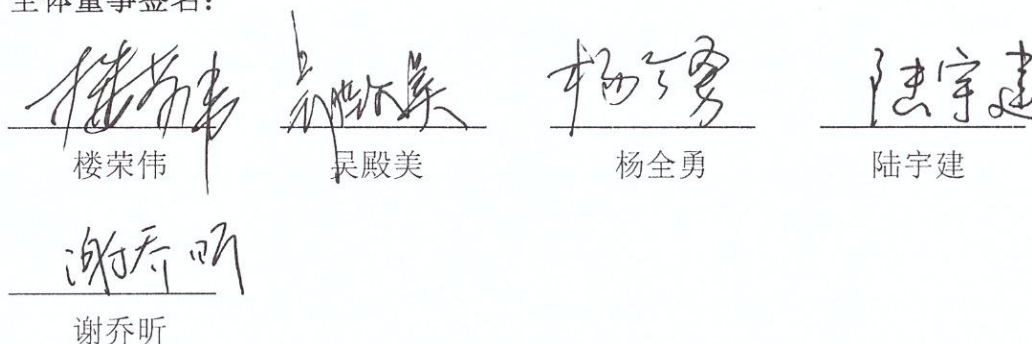 全体董事签名：
楼荣伟 吴殿美 杨全勇 陆宇建
楼荣伟 吴殿美 杨全勇 陆宇建
谢乔昕
谢乔昕